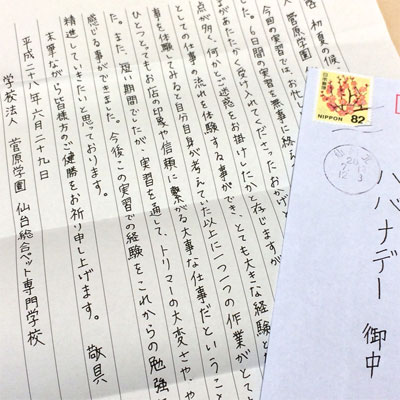 啓 初夏の候
人 菅原学園
今回の実習では、お忙し
六日間の実習を無事に終え
があたたかく受け入れてくださったおかげと
点が多く、何かとご迷惑をお掛けしたかと存じますが
としての仕事の流れを体験する事ができ、とても大きな経験と
事を体験してみると自分自身が考えていた以上に一つ一つの作業がとて
ひとつとってもお店の印象や信頼に繋がる大事な仕事だということ
た。また、短い期間でしたが、実習を通して、トリマーの大変さや、や
感じる事ができました。今後この実習での経験をこれからの勉強
精進していきたいと思っております。
本筆ながら皆様方のご健勝をお祈り申し上げます。 敬具
平成二十八年六月二十九日
学校法人 菅原学園 仙台総合ペット専門学校
日本郵便
NIPPON 82
ハバナデー 御中